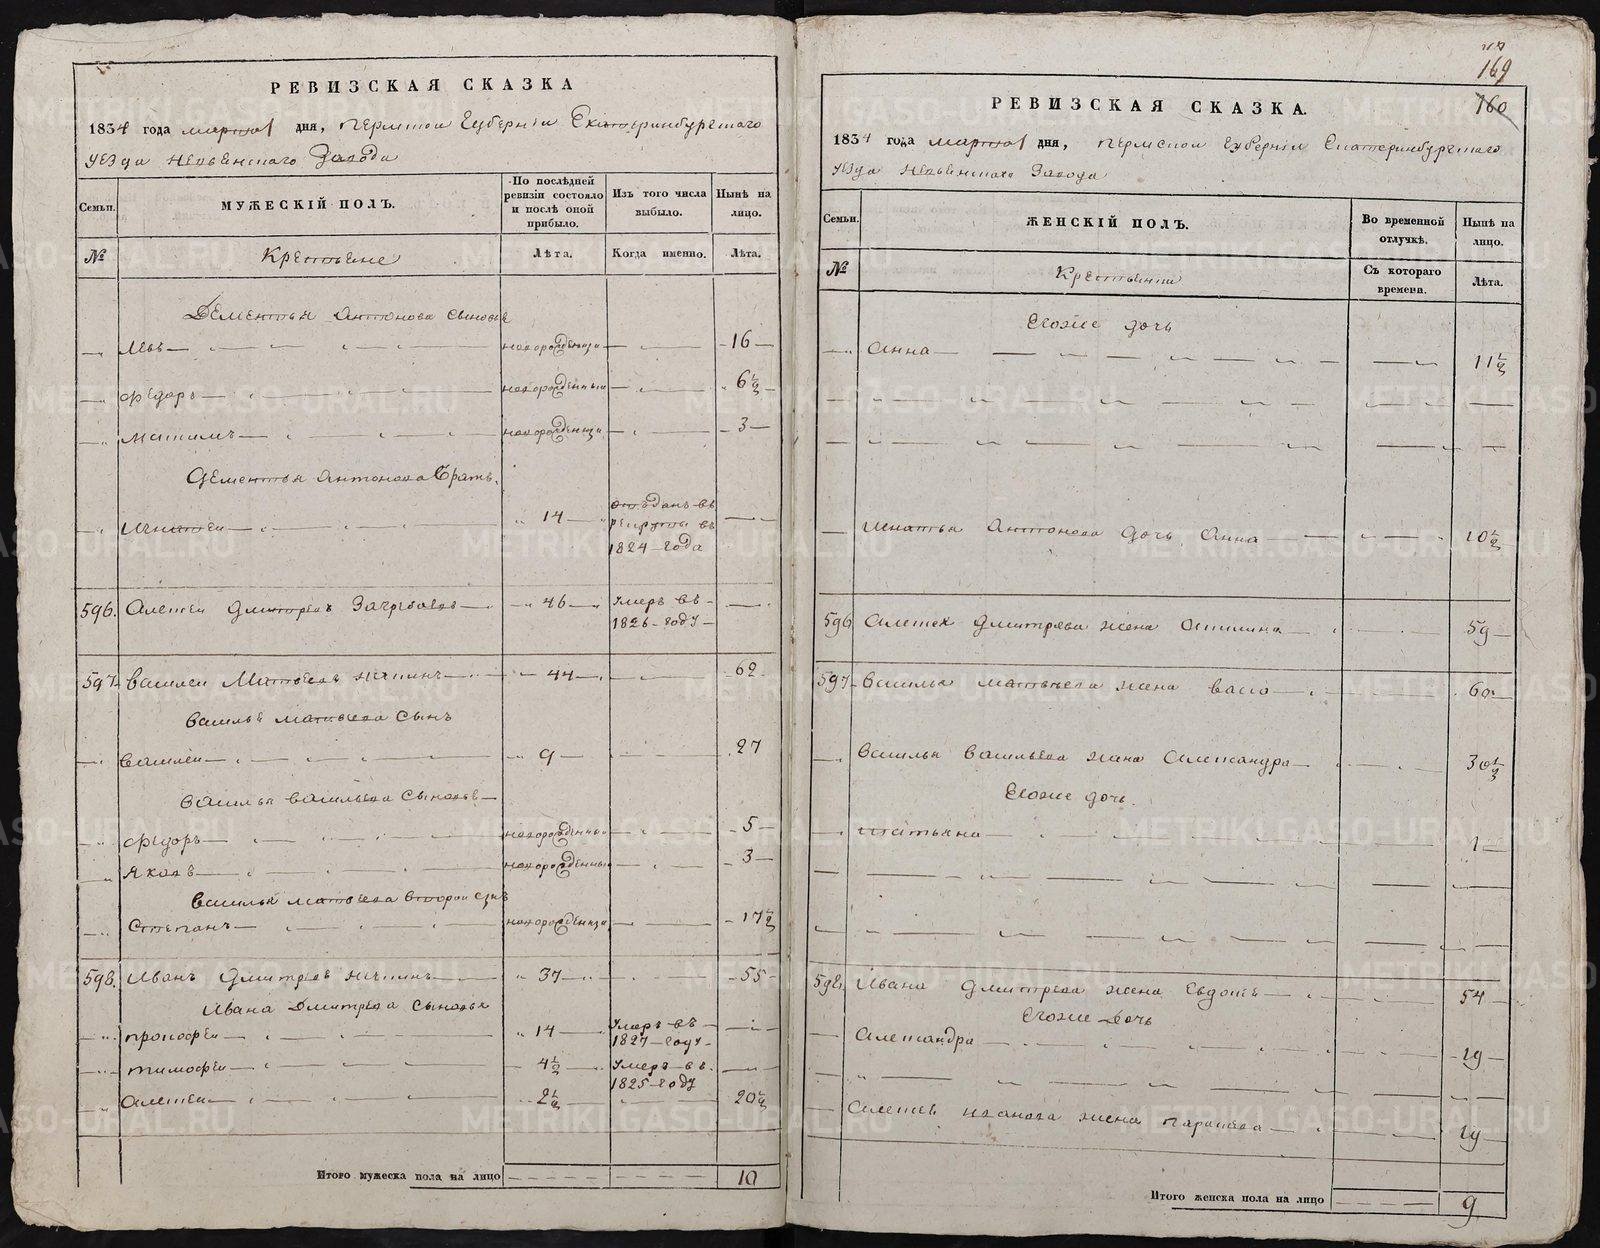 РЕВИЗСКАЯ СКАЗКА
1834 года марта 1 дня, Пермской Губерніи Екатеринбургскаго
уезда Невьенскаго Завода
Семьи.
МУЖЕСКІЙ ПОЛЪ.
По послѣдней ревизіи состояло и послѣ оной прибыло.
Изъ того числа выбыло.
Нынѣ на лицо.
№
Крестьяне
Лѣта.
Когда именно.
Лѣта.
Дементья Антонова сыновья
Левъ новорожденный 16
Федоръ новорожденный 6 1/2
Матвей новорожденный 3
Дементья Антонова братъ
Игнатеи 14 отъданъ въ
рекруты въ
1824 года
596. Алексеи Дмитревъ 46 умеръ въ
1826 году
597 Василеи Матвеевъ 44 62
Василья Матвеева сынъ
Василеи 9 27
Василья Васильева сыновья
Федоръ новорожденный 5
Яковъ новорожденный 3
Василья Матвеева второи сынъ
Степанъ новорожденный 17 1/2
598. Иванъ Дмитревъ 37 55
Ивана Дмитрева сыновья
Прокофеи 14 умеръ въ
1827 году
Тимофеи 4 1/2 умеръ въ
1825 году
Алексеи 2 1/2 20 1/2
Итого мужеска пола на лицо 10
169
160
РЕВИЗСКАЯ СКАЗКА.
1834 года марта 1 дня, Пермской Губерніи Екатеринбургскаго
уезда Невьенскаго Завода
Семьи.
ЖЕНСКІЙ ПОЛЪ.
Во временной отлучкѣ.
Нынѣ на лицо.
№
Съ котораго времена.
Лѣта.
Егоже дочь
Анна 11 1/2
Игнатья Антонова дочь Анна 10 1/2
596 Алексея Дмитрева жена 59
597 Василья Матвеева жена 60
Василья Васильева жена Александра 30 1/2
Егоже дочь.
Татьяна 1
598. Ивана Дмитрева жена Евдокея 54
Егоже дочь
Александра 19
Алексея Иванова жена 19
Итого женска пола на лицо 9
METRIKI.GASO-URAL.RU